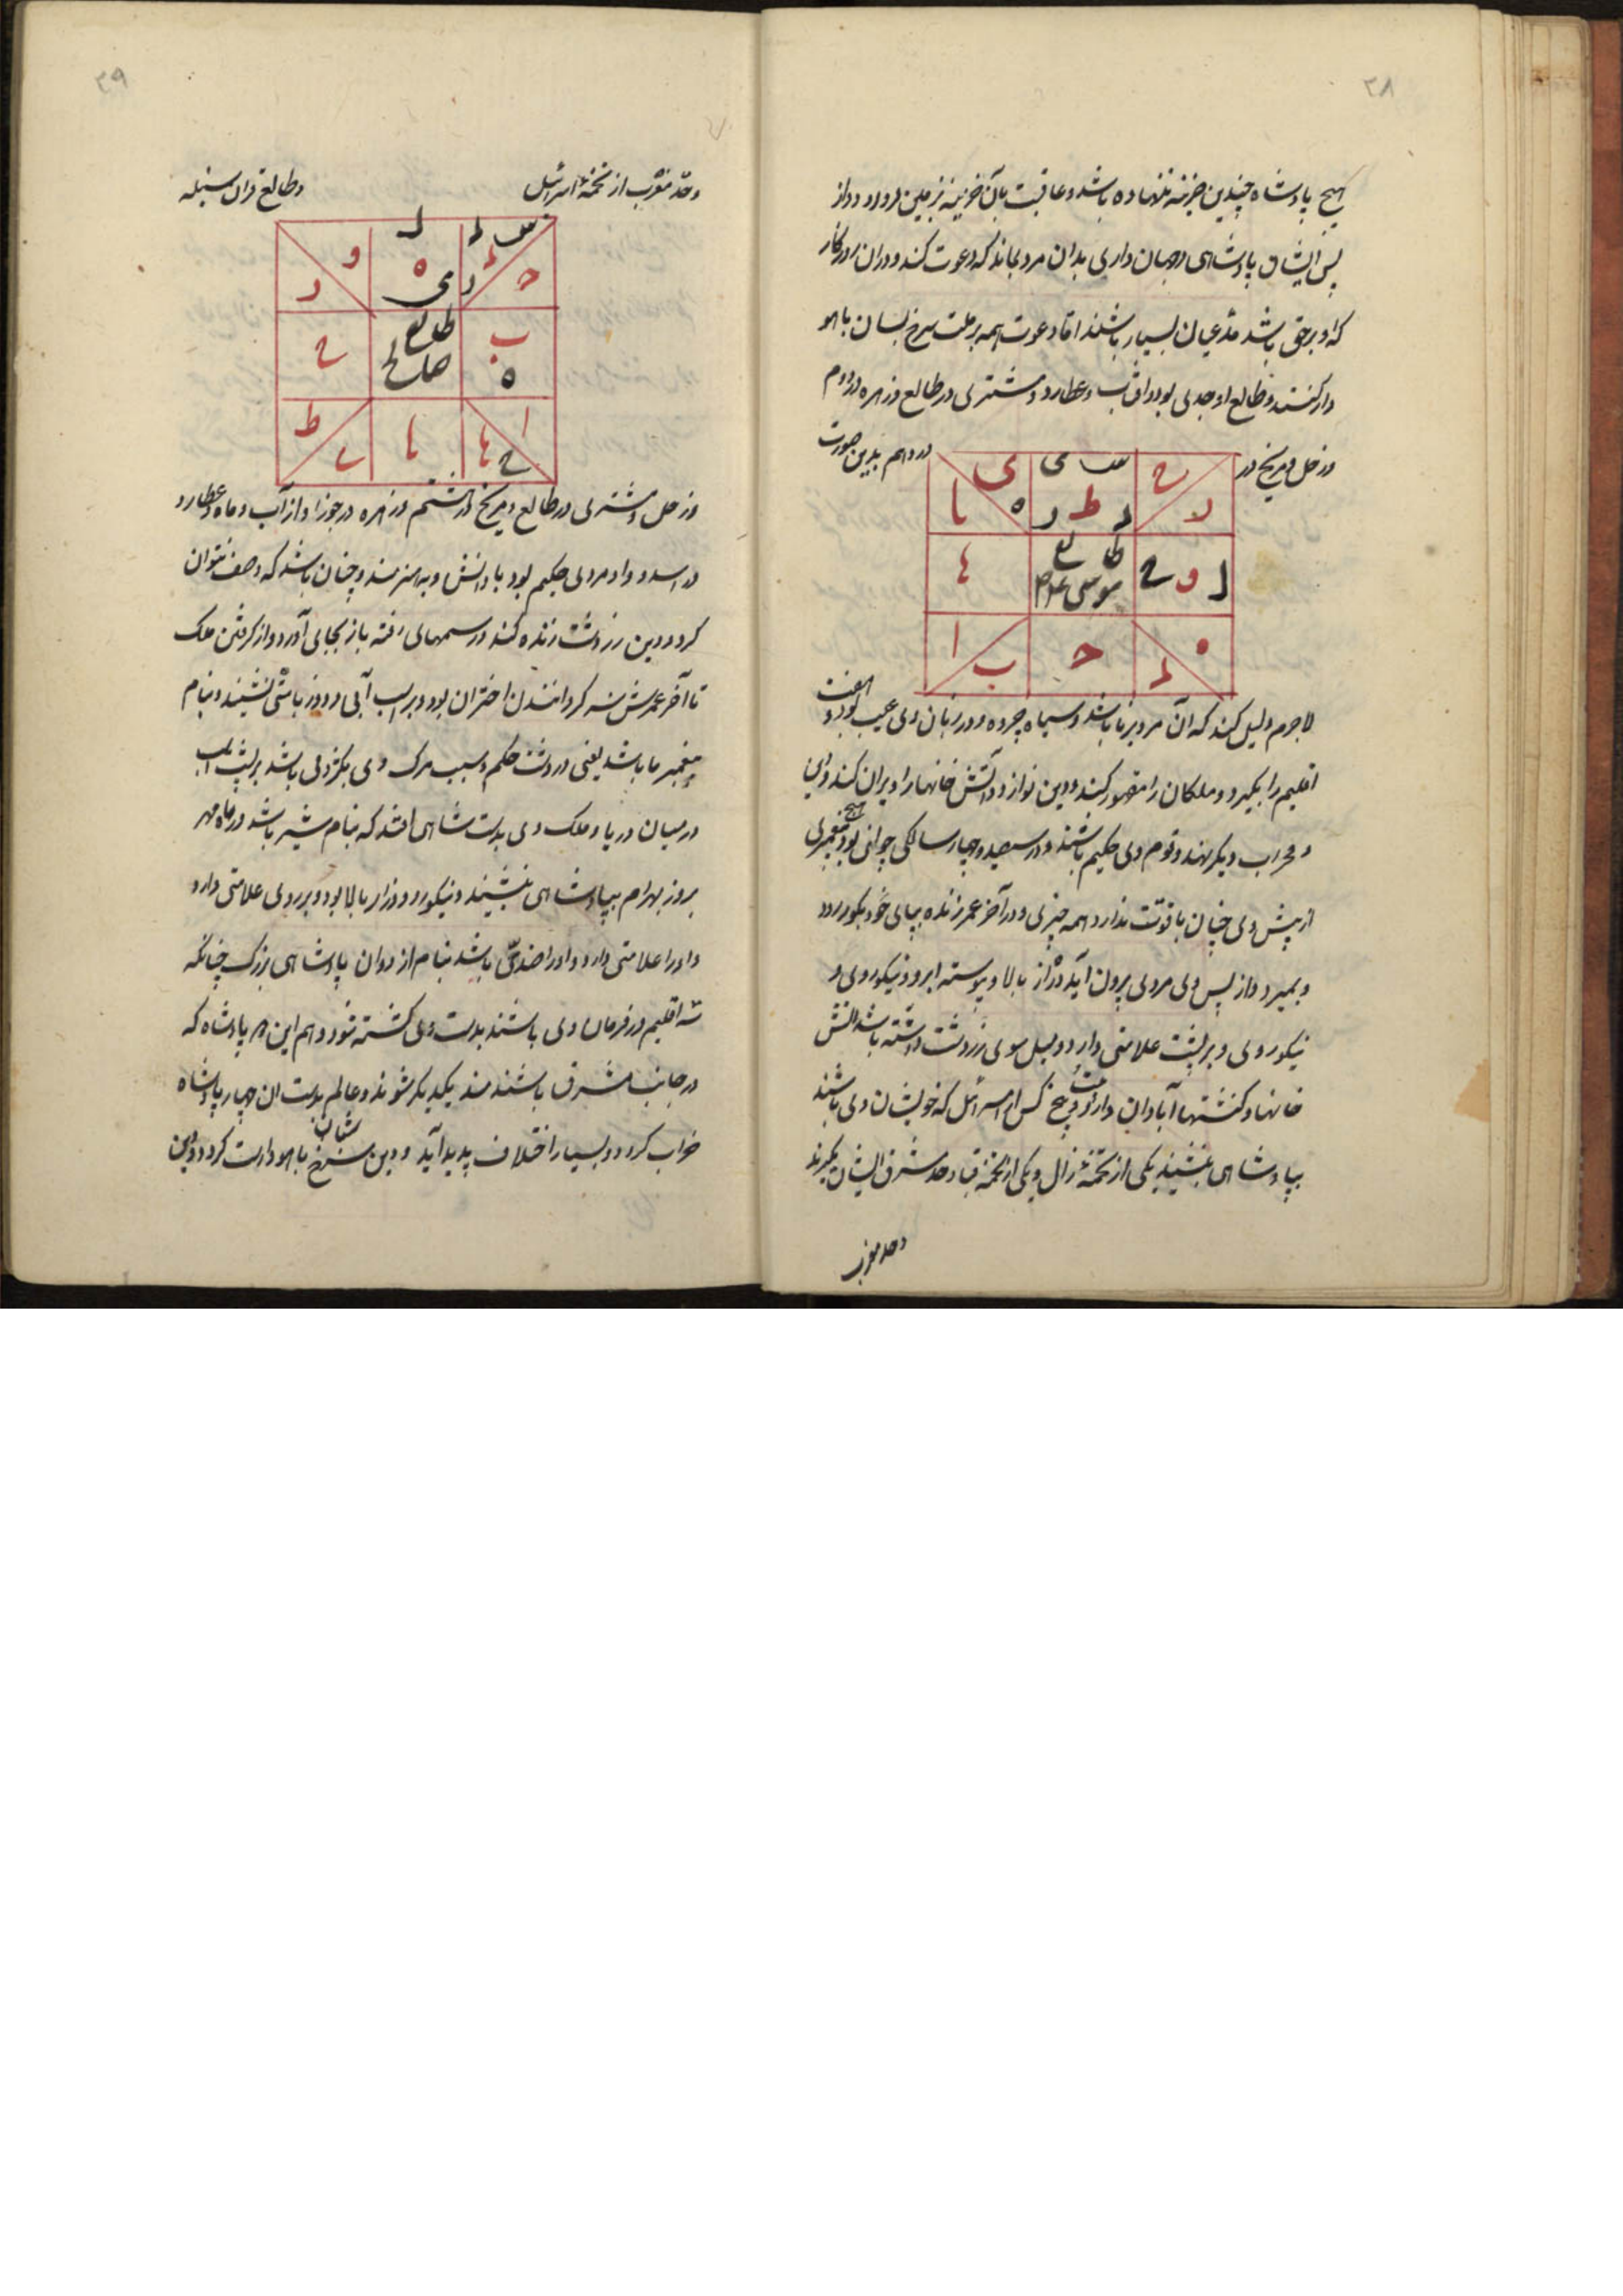 ۳۸
هیچ پادشاه چندین خزینه ننهاده باشد و عاقبت بآن خزینه بزمین فرو رود و از
پس ایشان پادشاهی و جهان داری بدان مرد بماند که دعوت کند و در آن روزگار
که او بر حق باشد مدعیان بسیار باشند اما دعوت همه بر ملت سرخ بسان باهو
دار کنند و طالع او جدی بود و افتاب و عطارد و مشتری در طالع و زهره در دوم
و زحل و مریخ در
در دهم بدین صورت
طالع
موسی علیه
لاجرم دلیل کند که آن مرد برنا باشد و سیاه چرده و در زبان وی عیب بود و هفت
اقلیم را بگیرد و ملکان را مقهور کند و دین نو آرد و آتش خانها را ویران کند و این
و محراب دیگر نهند و قوم وی حکیم باشند و در سیصد و چهار سالگی جوانی بود و هیچ پیغمبری
از پیش وی چنان با قوت ندارد همه چیزی و در آخر عمر زنده بپای خود بگور رود
و بمیرد و از پس وی مردی برون آید دراز بالا و پیوسته ابرو و نیکوروی و
نیکوروی و بر پشت علامتی دارد و میل سوی زردشت داشته باشد آتش
خانها و کنشتها آبادان دارد و پنج کس از اسرائیل که خویشان وی باشند
بپادشاهی بنشیند یکی از تخمه زال و یکی از تخمه قباد حد مشرق ایشان بگیرند
و حد مغرب
۳۹
و حد مغرب از تخمه اسرائیل
و طالع قران سنبله
طالع
صالح
و زحل و مشتری در طالع و مریخ در هشتم و زهره در جوزا و از آب و ماه و عطارد
در اسد و او مردی حکیم بود با دانش و به هنرمند و چنان باشد که وصف نتوان
کرد و دین زردشت زنده کند و رسمهای رفته باز بجای آورد و از گرفتن ملک
تا آخر عمرش نه گردانندن اختران بود و بر لب آبی و روز باشتی نشیند و بنام
پیغمبر ما باشد یعنی زردشت حکیم و سبب مرگ وی بگژدلی باشد بر پشت اسب
در میان دریا و ملک وی بدست شاهی افتد که بنام شیر باشد در ماه مهر
بروز بهرام بپادشاهی بنشیند و نیکورو و دراز بالا بود و بر روی علامتی دارد
و او را علامتی دارد و او را ضدی باشد بنام از دوان پادشاهی بزرگ چنانکه
سه اقلیم در فرمان وی باشند بدست وی کشته شود و هم این هر پادشاه که
در جانب مشرق باشند ضد یکدیگر شوند و عالم بدست ان چهار پادشاه
خراب گردد و بسیار اختلاف پدید آید و دین سرخ شبان باهودارست گردد و این